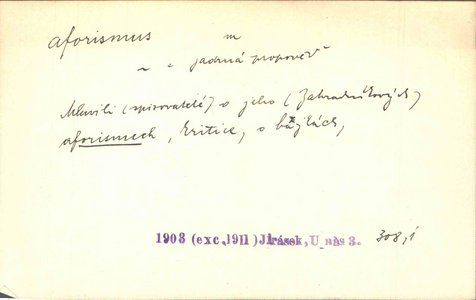 aforismus m
~ = jadrná propověď
Mluvili (spisovatelé) o jeho (Zahradníkových)
aforismech, kritice, o bajkách,
1903 (exc. 1911) Jirásek, U nás 3. 308,1